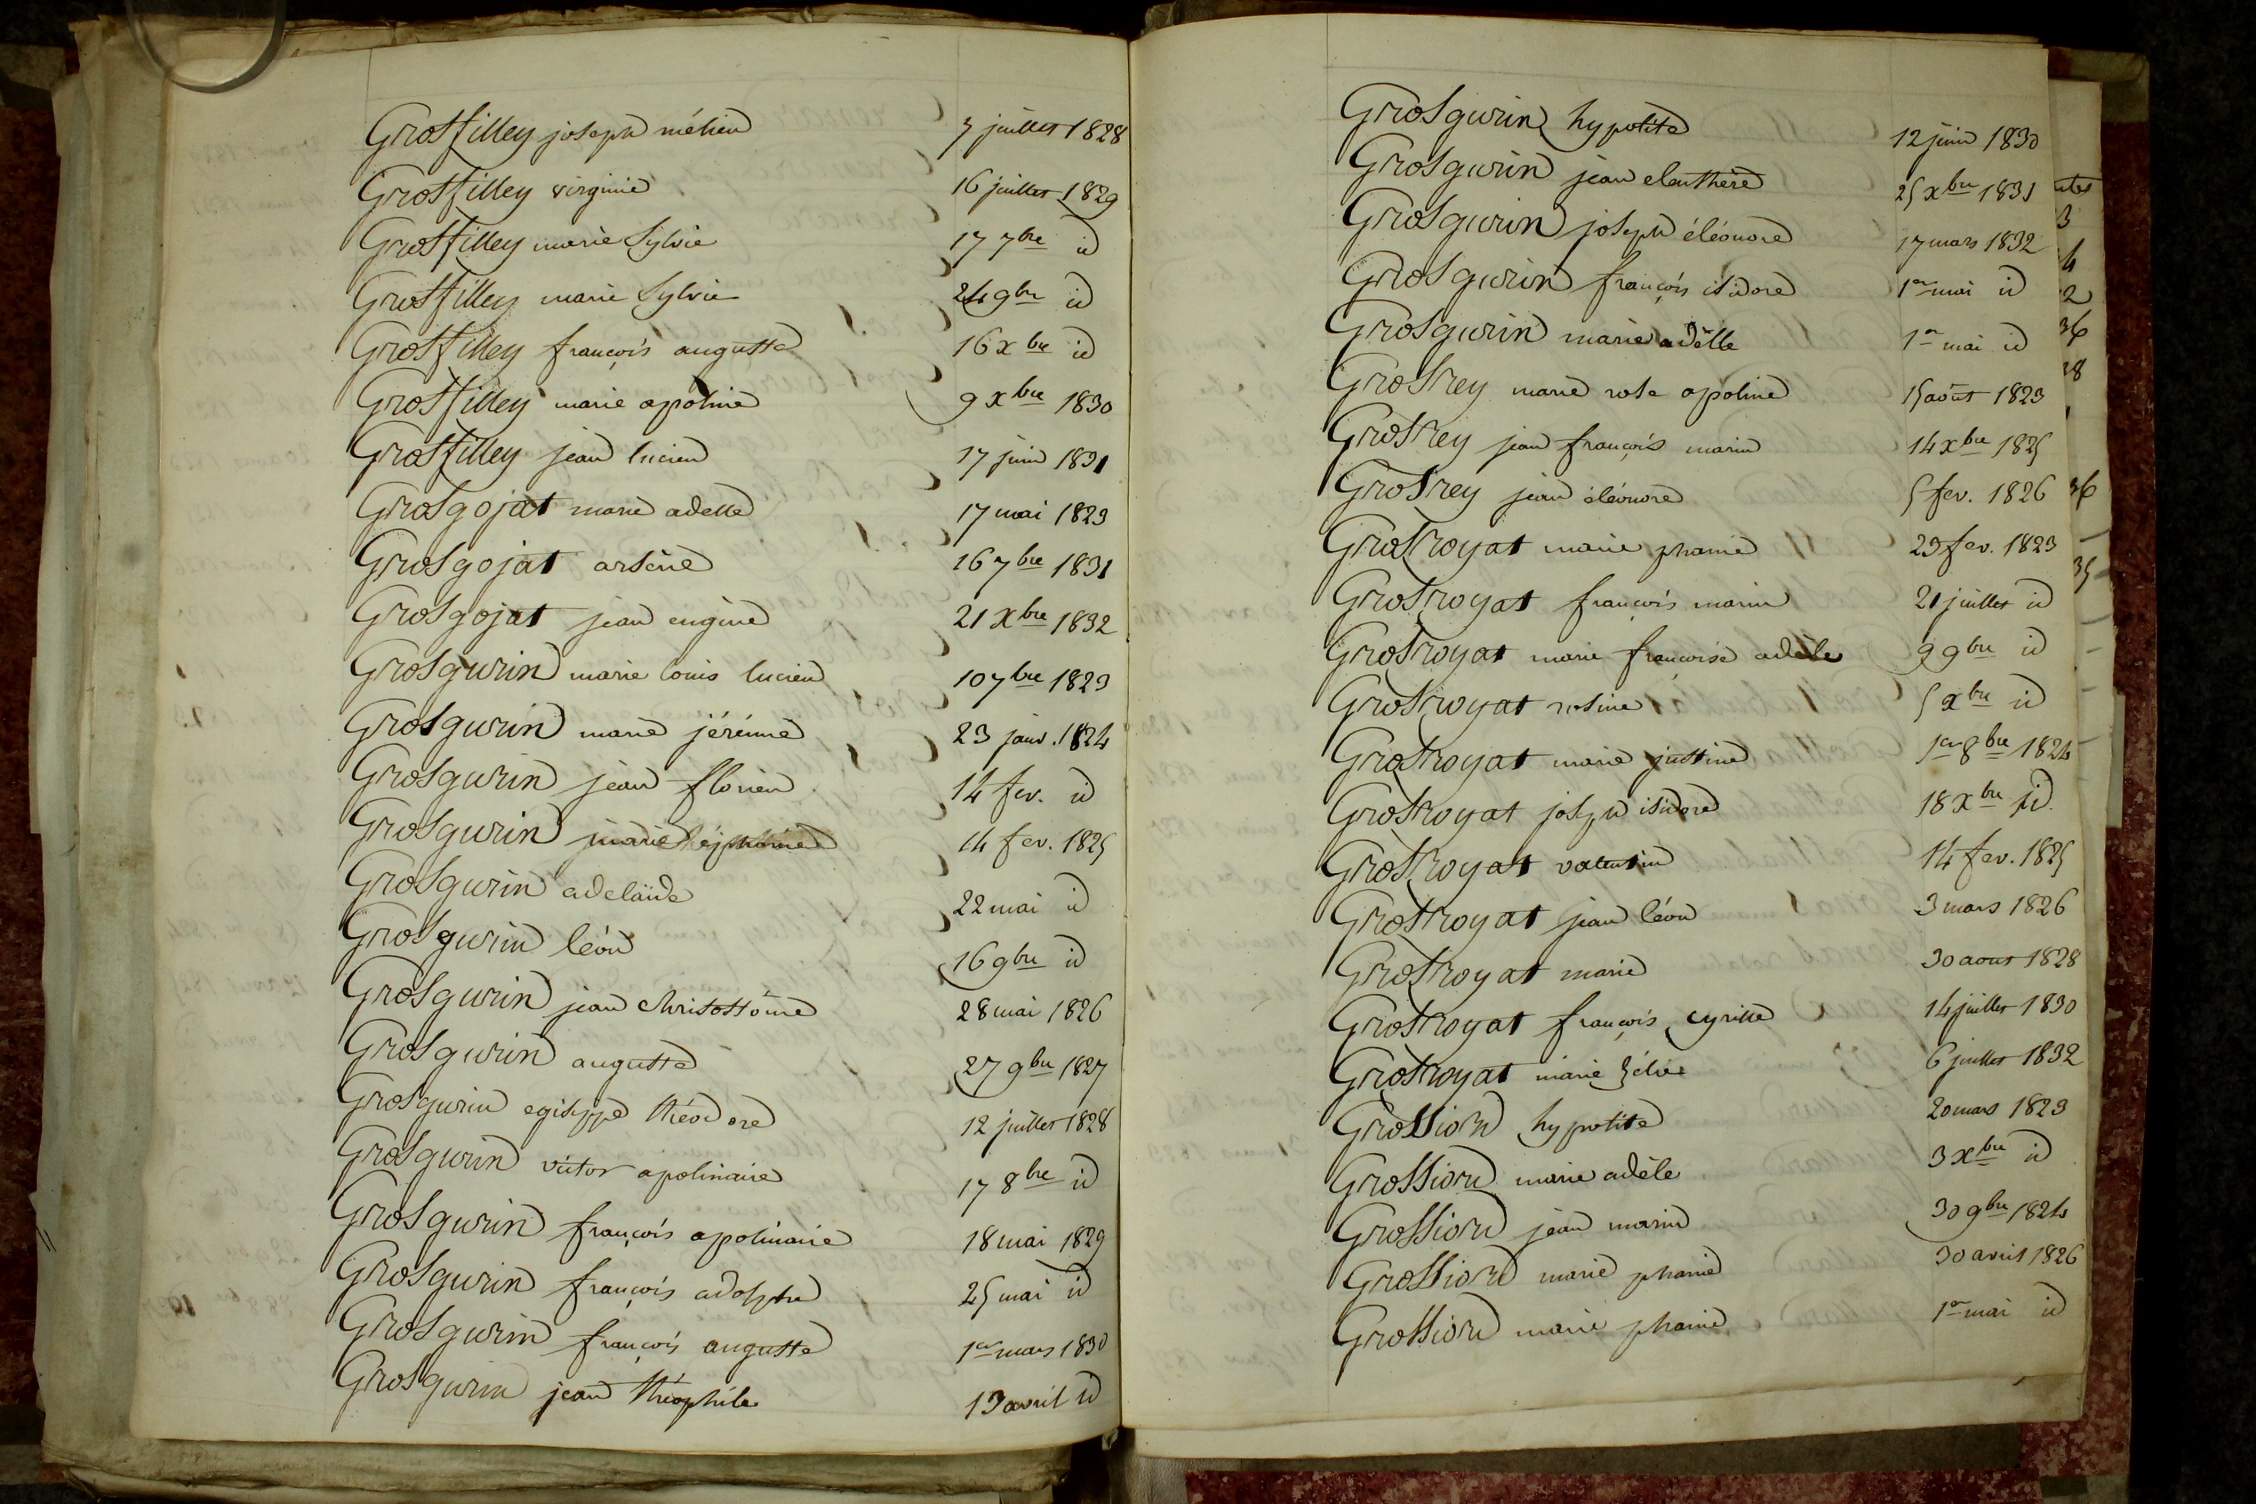 Grosfilley joseph mélien 7 juillet 1828
Grosfilley virginie 16 juillet 1829
Grosfilley marie Sylvie 17 7bre id
Grosfilley marie Sylvie 24 9bre id
Grosfilley françois auguste 16 xbre id
Grosfilley marie apoline 9 xbre 1830
Grosfilley jean lucien 17 juin 1831
Grosgojat marie adelle 17 mai 1823
Grosgojat arsène 16 7bre 1831
Grosgojat jean eugène 21 xbre 1832
Grosgurin marie louis lucien 10 7bre 1823
Grosgurin marie jérémie 23 janv. 1824
Grosgurin jean florien 14 fev. id
Grosgurin marie 14 fev. 1825
Grosgurin adelaïde 22 mai id
Grosgurin léon 16 9bre id
Grosgurin jean christostôme 28 mai 1826
Grosgurin auguste 27 9bre 1827
Grosgurin egisyppe théodore 12 juillet 1828
Grosgurin victor apolinaire 17 8bre id
Grosgurin françois apolinaire 18 mai 1829
Grosgurin françois adolphe 25 mai id
Grosgurin françois auguste 1er mars 1830
Grosgurin jean théophile 13 avril id
Grosgurin hypolite 12 juin 1830
Grosgurin jean eleuthère 25 xbre 1831
Grosgurin joseph éléonore 17 mars 1832
Grosgurin françois isidore 1er mai id
Grosgurin marie adèlle 1er mai id
Grosrey marie rose apoline 15 août 1823
Grosrey jean françois marin 14 xbre 1825
Grosrey jean éléonore 5 fev. 1826
Grosroyat marie phanie 23 fev. 1823
Grosroyat françois marin 21 juillet id
Grosroyat marie françoise adèle 9 9bre id
Grosroyat rosine 5 xbre id
Grosroyat marie justine 1er 8bre 1824
Grosroyat joseph isidore 18 xbre id
Grosroyat valentin 14 fev. 1825
Grosroyat jean léon 3 mars 1826
Grosroyat marie 30 aout 1828
Grosroyat françois cyrille 14 juillet 1830
Grosroyat marie Zélie 6 juillet 1832
Grossiord hypolite 20 mars 1823
Grossiord marie adèle 3 xbre id
Grossiord jean marin 30 9bre 1824
Grossiord marie phanie 30 avril 1826
Grossiord marie phanie 1er mai id